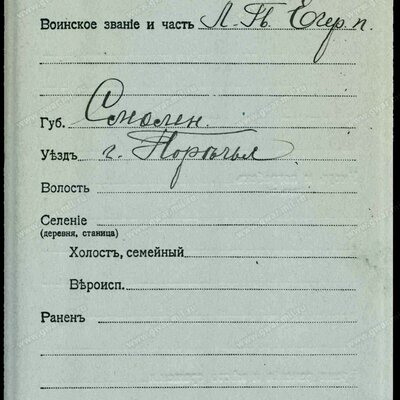 Воинское званіе и часть Л.-Гв. Егер. п.
Губ. Смолен.
Уѣздъ г. Порѣчья
Волость
Селеніе
(деревня, станица)
Холостъ, семейный
Вѣроисп.
Раненъ